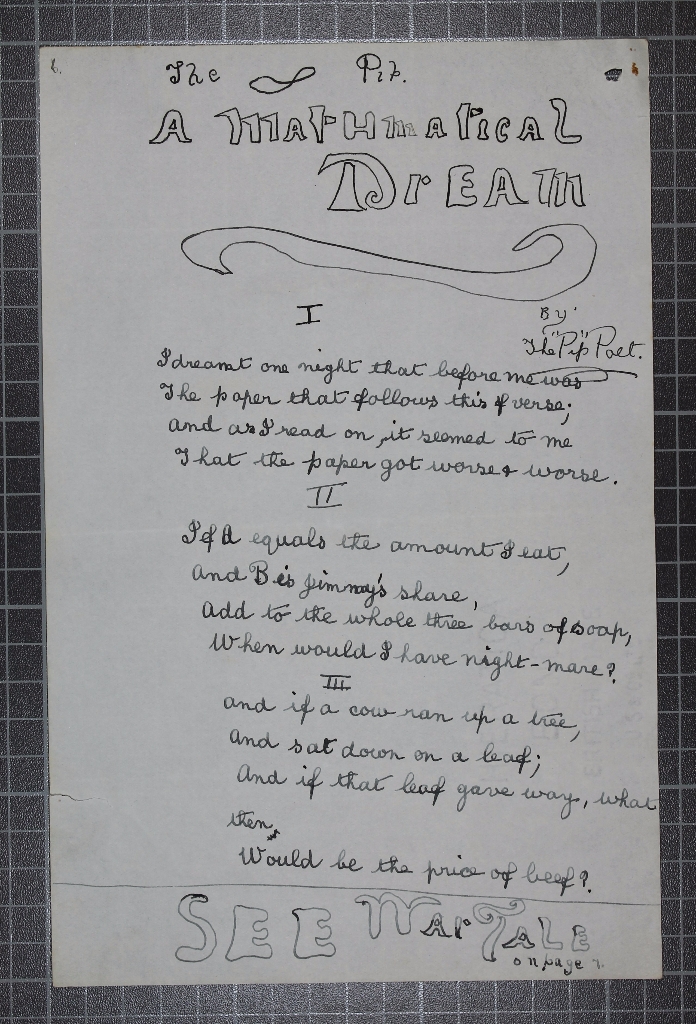 6.
The Pip.
A MATHMATICAL
DREAM
I
By
The "Pip" Poet.
I dreamt one night that before me was
The paper that follows this verse;
and as I read on, it seemed to me
That the paper got worse & worse.
II
If A equals the amount I eat,
And B is Jimmy's share,
Add to the whole three bars of soap,
When would I have night-mare?
III
and if a cow ran up a tree,
And sat down on a leaf;
And if that leaf gave way, what
then,
Would be the price of beef?
SEE WAR TALE
on page 7.